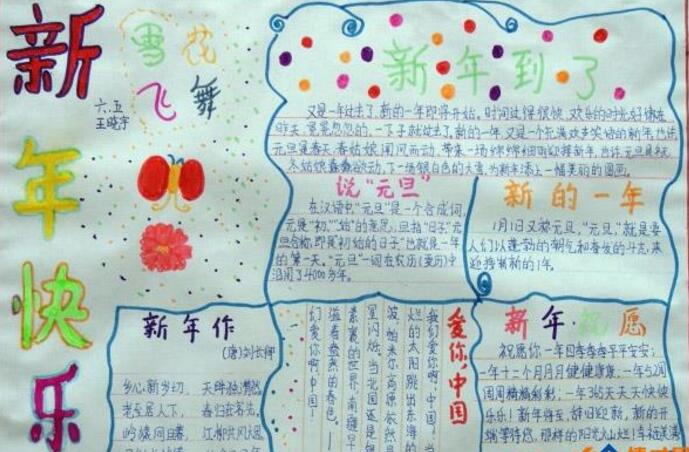 新年快乐
雪花
飞舞
六.五
王晓宇
新年到了
又是一年过去了,新的一年即将开始。时间过得很快,欢乐的时光好像在
昨天,匆匆忽忽的,一下子就过去了,新的一年又是个充满欢声笑语的新年,也许,
元旦是春天,春姑娘闻风而动,带来一场绵绵细雨迎接新年,也许,元旦是冬天
冬姑娘蠢蠢欲动,下一场银白色的大雪,为新年添上一幅美丽的图画。
说“元旦”
在汉语中“元旦”是一个合成词,
元是“初”、“始”的意思,旦指“日子”元
旦合称,即是“初始的日子”也就是一年
的第一天。“元旦”一词在农历(夏历)中
沿用了4000多年。
新的一年
1月1日又称元旦,“元旦,”就是要
人们以蓬勃的朝气和奋发的斗志,来
迎接崭新的1年。
新年作
(唐)刘长卿
乡心新岁切,天畔独潸然。
老至居人下,春归在客先。
岭猿同旦暮,江柳共风烟。
爱你,中国
我们爱你,中国!当
灿烂的太阳跳出东海的
波,帕米尔高原依然是
星闪烁。当北国还是银
素裹的世界,南疆早
溢着盎然的春色。
们爱你啊,中国!
新年·祝愿
祝愿你一年四季季季平平安安;
一年十二个月月月健健康康;一年52周
周周精精彩彩;一年365天天天快快
乐乐!新年将至,辞旧迎新,新的开
端等待您,那样的阳光火灿烂!幸福美满